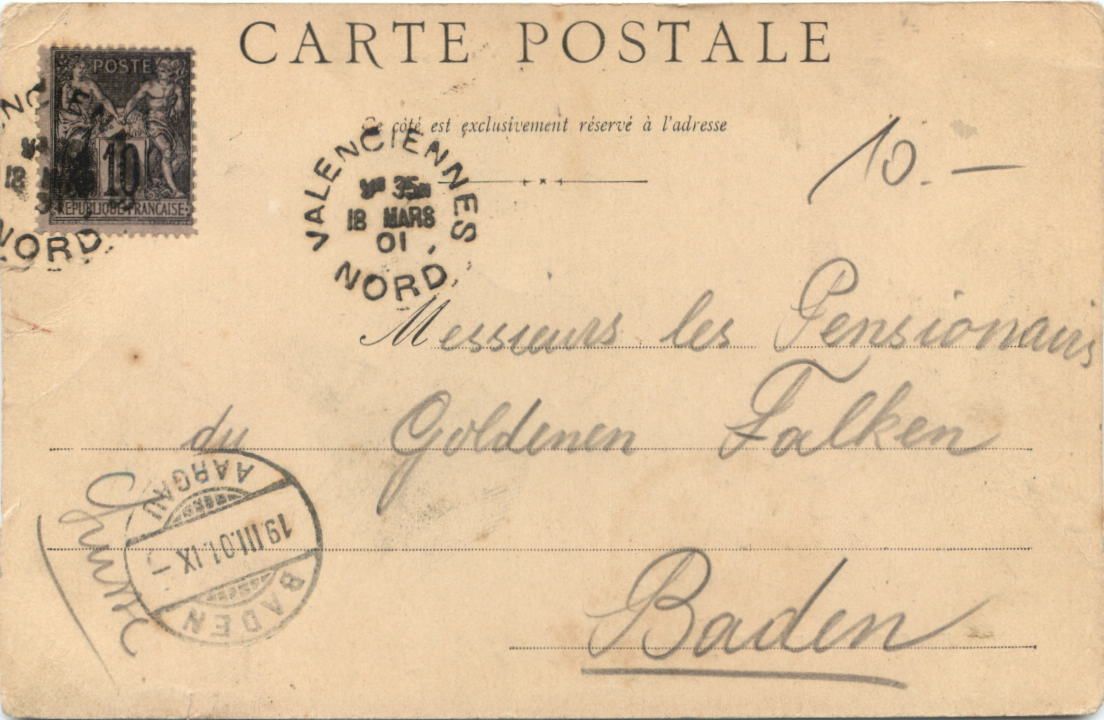 CARTE POSTALE
POSTE
10
REPUBLIQUE FRANCAISE
Ce côté est exclusivement réservé à l'adresse
10.-
VALENCIENNES
35
18 MARS
01
NORD
18
NORD
Messieurs les Pensionairs
du Goldenen Falken
Baden
AARGAU
19.III.01.IX
BADEN